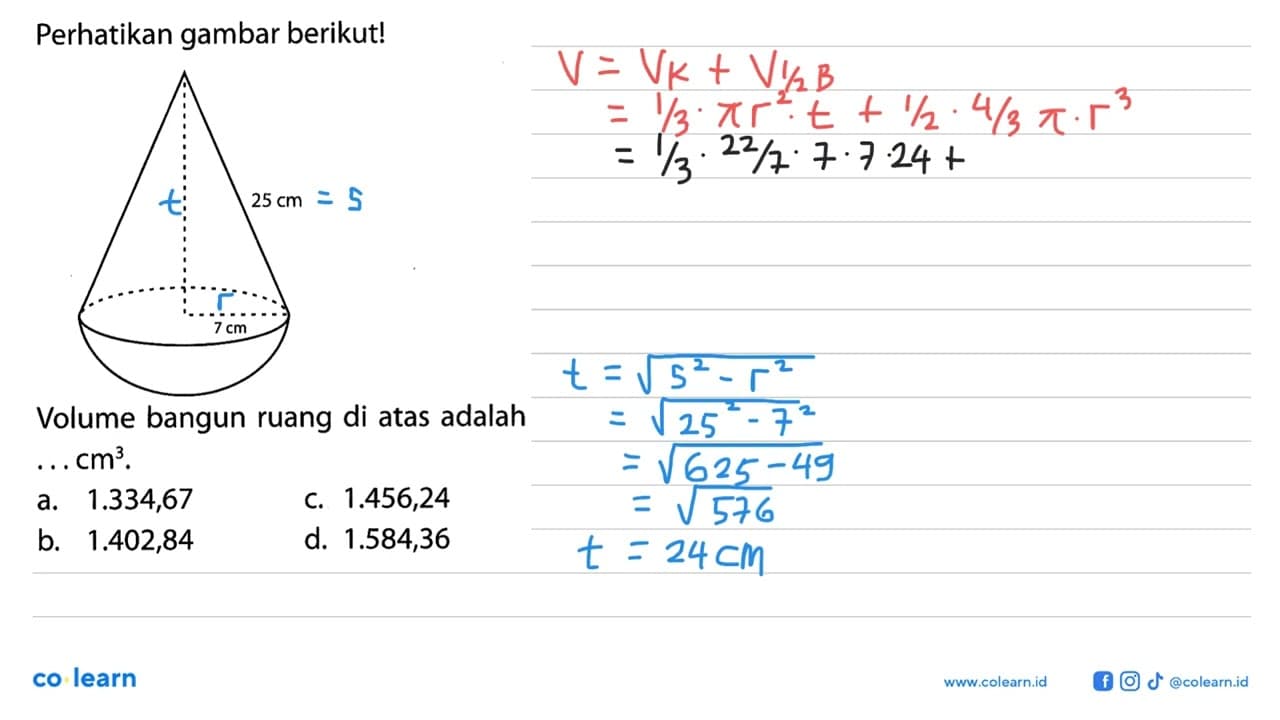 Perhatikan gambar berikut!
t
25 cm = s
r
7 cm
Volume bangun ruang di atas adalah
... cm³.
a. 1.334,67
c. 1.456,24
b. 1.402,84
d. 1.584,36
V = VK + V½B
= 1/3 · πr² · t + 1/2 · 4/3 π · r³
= 1/3 · 22/7 · 7 · 7 · 24 +
t = √s² - r²
= √25² - 7²
= √625 - 49
= √576
t = 24 cm
co·learn
www.colearn.id
@colearn.id